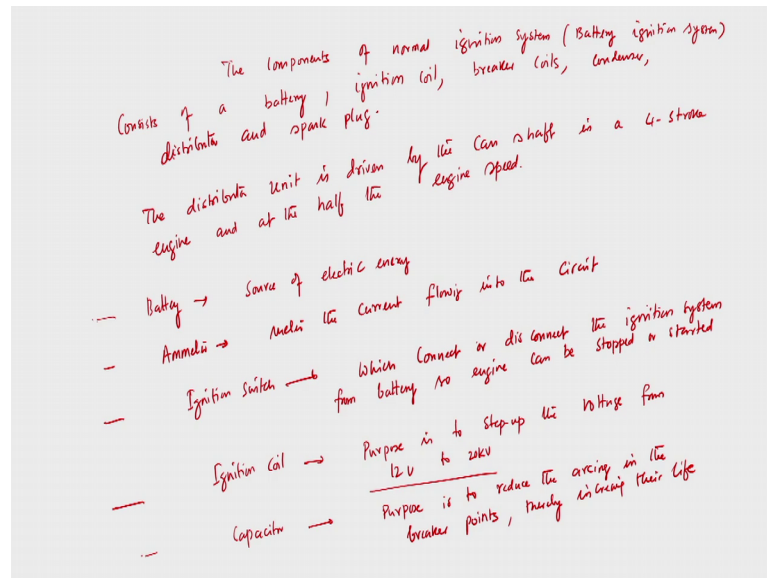 The Components of normal ignition system (Battery ignition system)
Consists of a battery, ignition coil, breaker coils, condenser,
distributor and spark plug.
The distributor unit is driven by the Cam shaft in a 4-stroke
engine and at the half the engine speed.
— Battery → Source of electric energy
— Ammeter → the current flowing into the Circuit
— Ignition Switch → Which Connect or disconnect the ignition system
from battery so engine can be stopped or started
— Ignition Coil → Purpose is to step-up the voltage from
12V to 20KV
— Capacitor → Purpose is to reduce the arcing in the
breaker points, thereby increasing their life